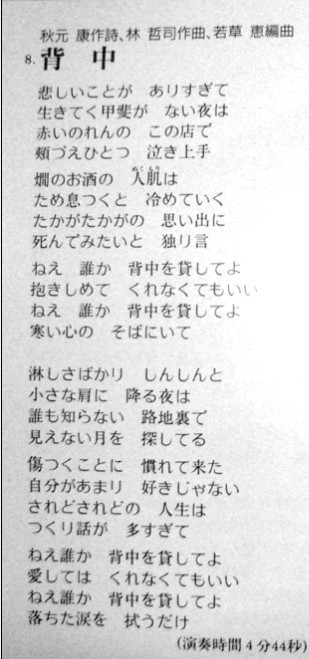 秋元 康作詩、林 哲司作曲、若草 恵編曲
8. 背 中
悲しいことが ありすぎて
生きてく甲斐が ない夜は
赤いのれんの この店で
頬づえひとつ 泣き上手
燗のお酒の 人肌は
ため息つくと 冷めていく
たかがたかがの 思い出に
死んでみたいと 独り言
ねえ 誰か 背中を貸してよ
抱きしめて くれなくてもいい
ねえ 誰か 背中を貸してよ
寒い心の そばにいて
淋しさばかり しんしんと
小さな肩に 降る夜は
誰も知らない 路地裏で
見えない月を 探してる
傷つくことに 慣れて来た
自分があまり 好きじゃない
されどされどの 人生は
つくり話が 多すぎて
ねえ誰か 背中を貸してよ
愛しては くれなくてもいい
ねえ誰か 背中を貸してよ
落ちた涙を 拭うだけ
(演奏時間4分44秒)